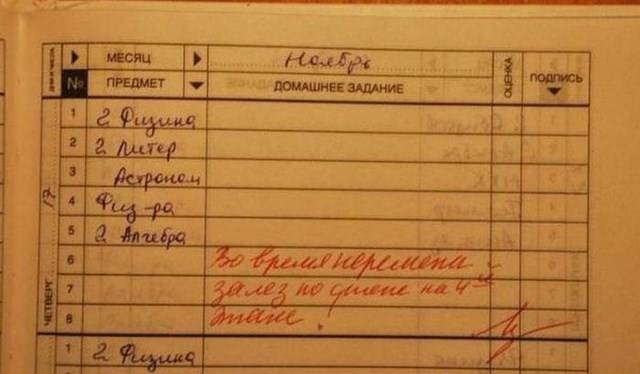 МЕСЯЦ Ноябрь
ДНИ И ЧИСЛА № ПРЕДМЕТ ДОМАШНЕЕ ЗАДАНИЕ ОЦЕНКА ПОДПИСЬ
ЧЕТВЕРГ 17
1 2 Физика
2 2 Литер
3 Астроном
4 Физ-ра
5 2 Алгебра
6 Во время перемены
7 залез по стене на 4ый
8 этаж.
1 2 Физика